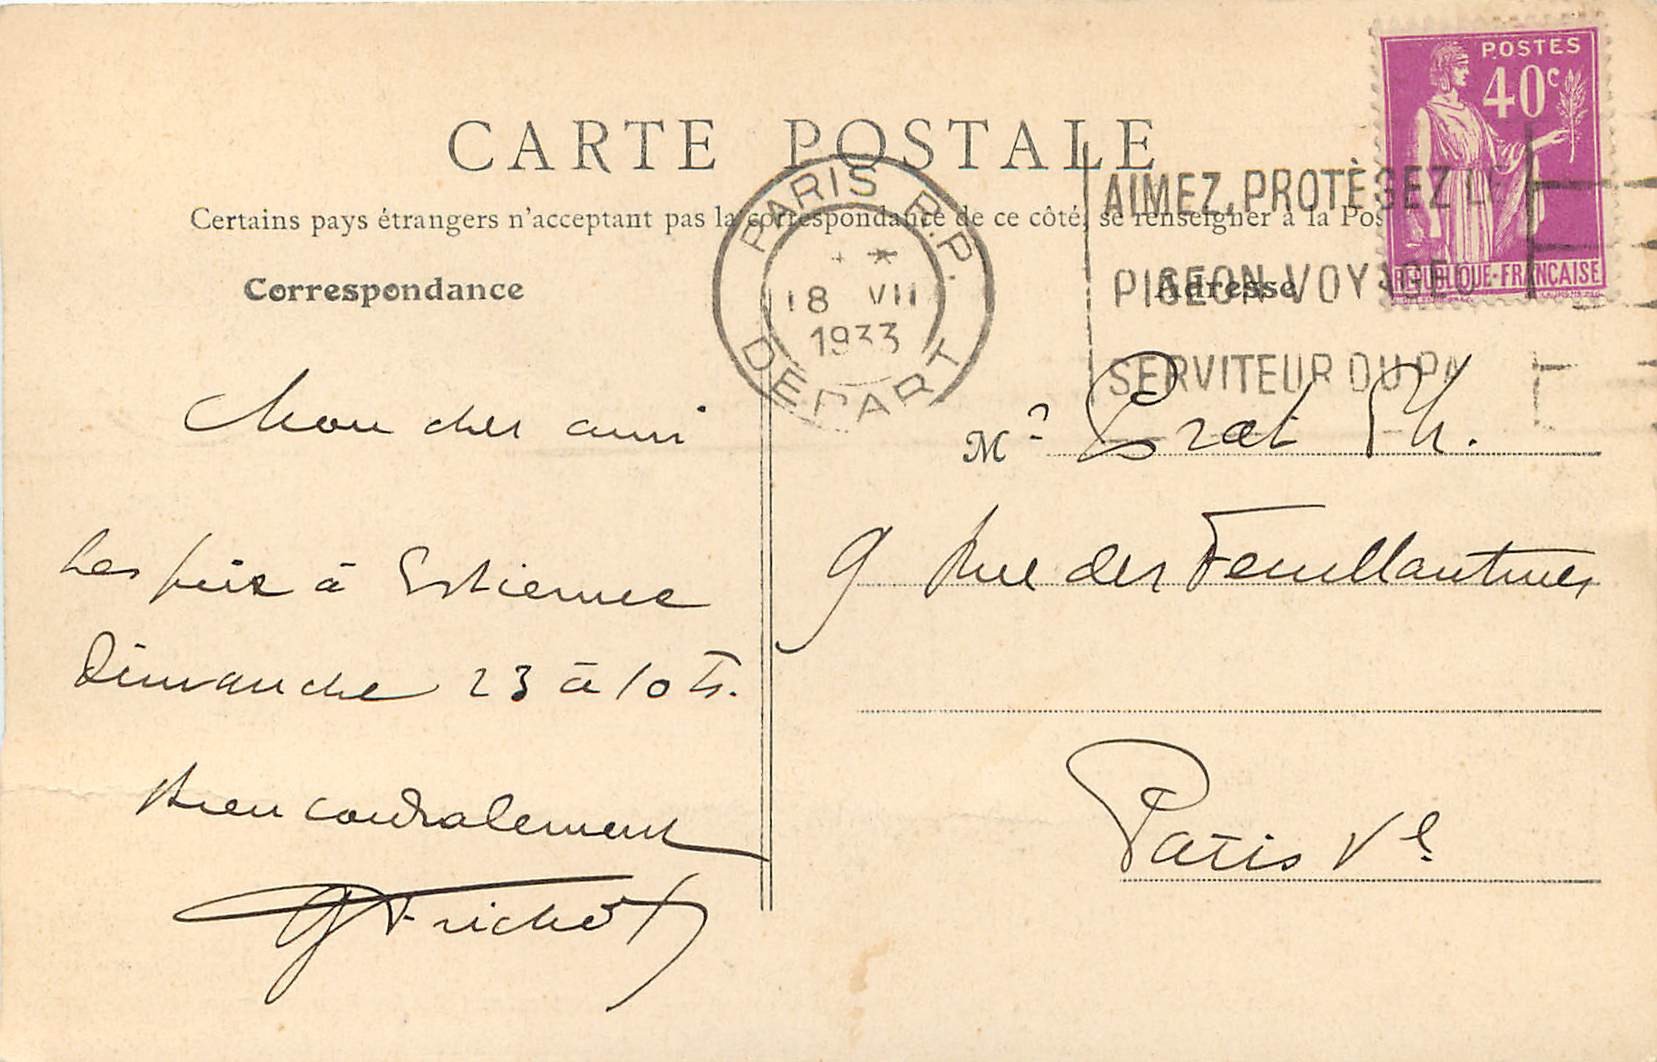 CARTE POSTALE
Certains pays étrangers n'acceptant pas la correspondance de ce côté, se renseigner à la Pos
Correspondance
Adresse
POSTES
40c
REPUBLIQUE-FRANÇAISE
PARIS R.P.
18 VII
1933
DÉPART
AIMEZ, PROTÈGEZ LE
PIGEON VOYAGEU
SERVITEUR DU PA
Mon cher ami
Les prix à Estienne
Dimanche 23 à 10 h.
Bien cordialement
G Frichet
Mr Prat Ph.
9 Rue des Feuillantines
Paris Ve